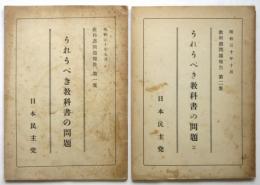 昭和三十年十月
教科書問題報告 第二集
うれうべき教科書の問題 二
日本民主党
教科書問題報告 第一集
うれうべき教科書の問題
日本民主党